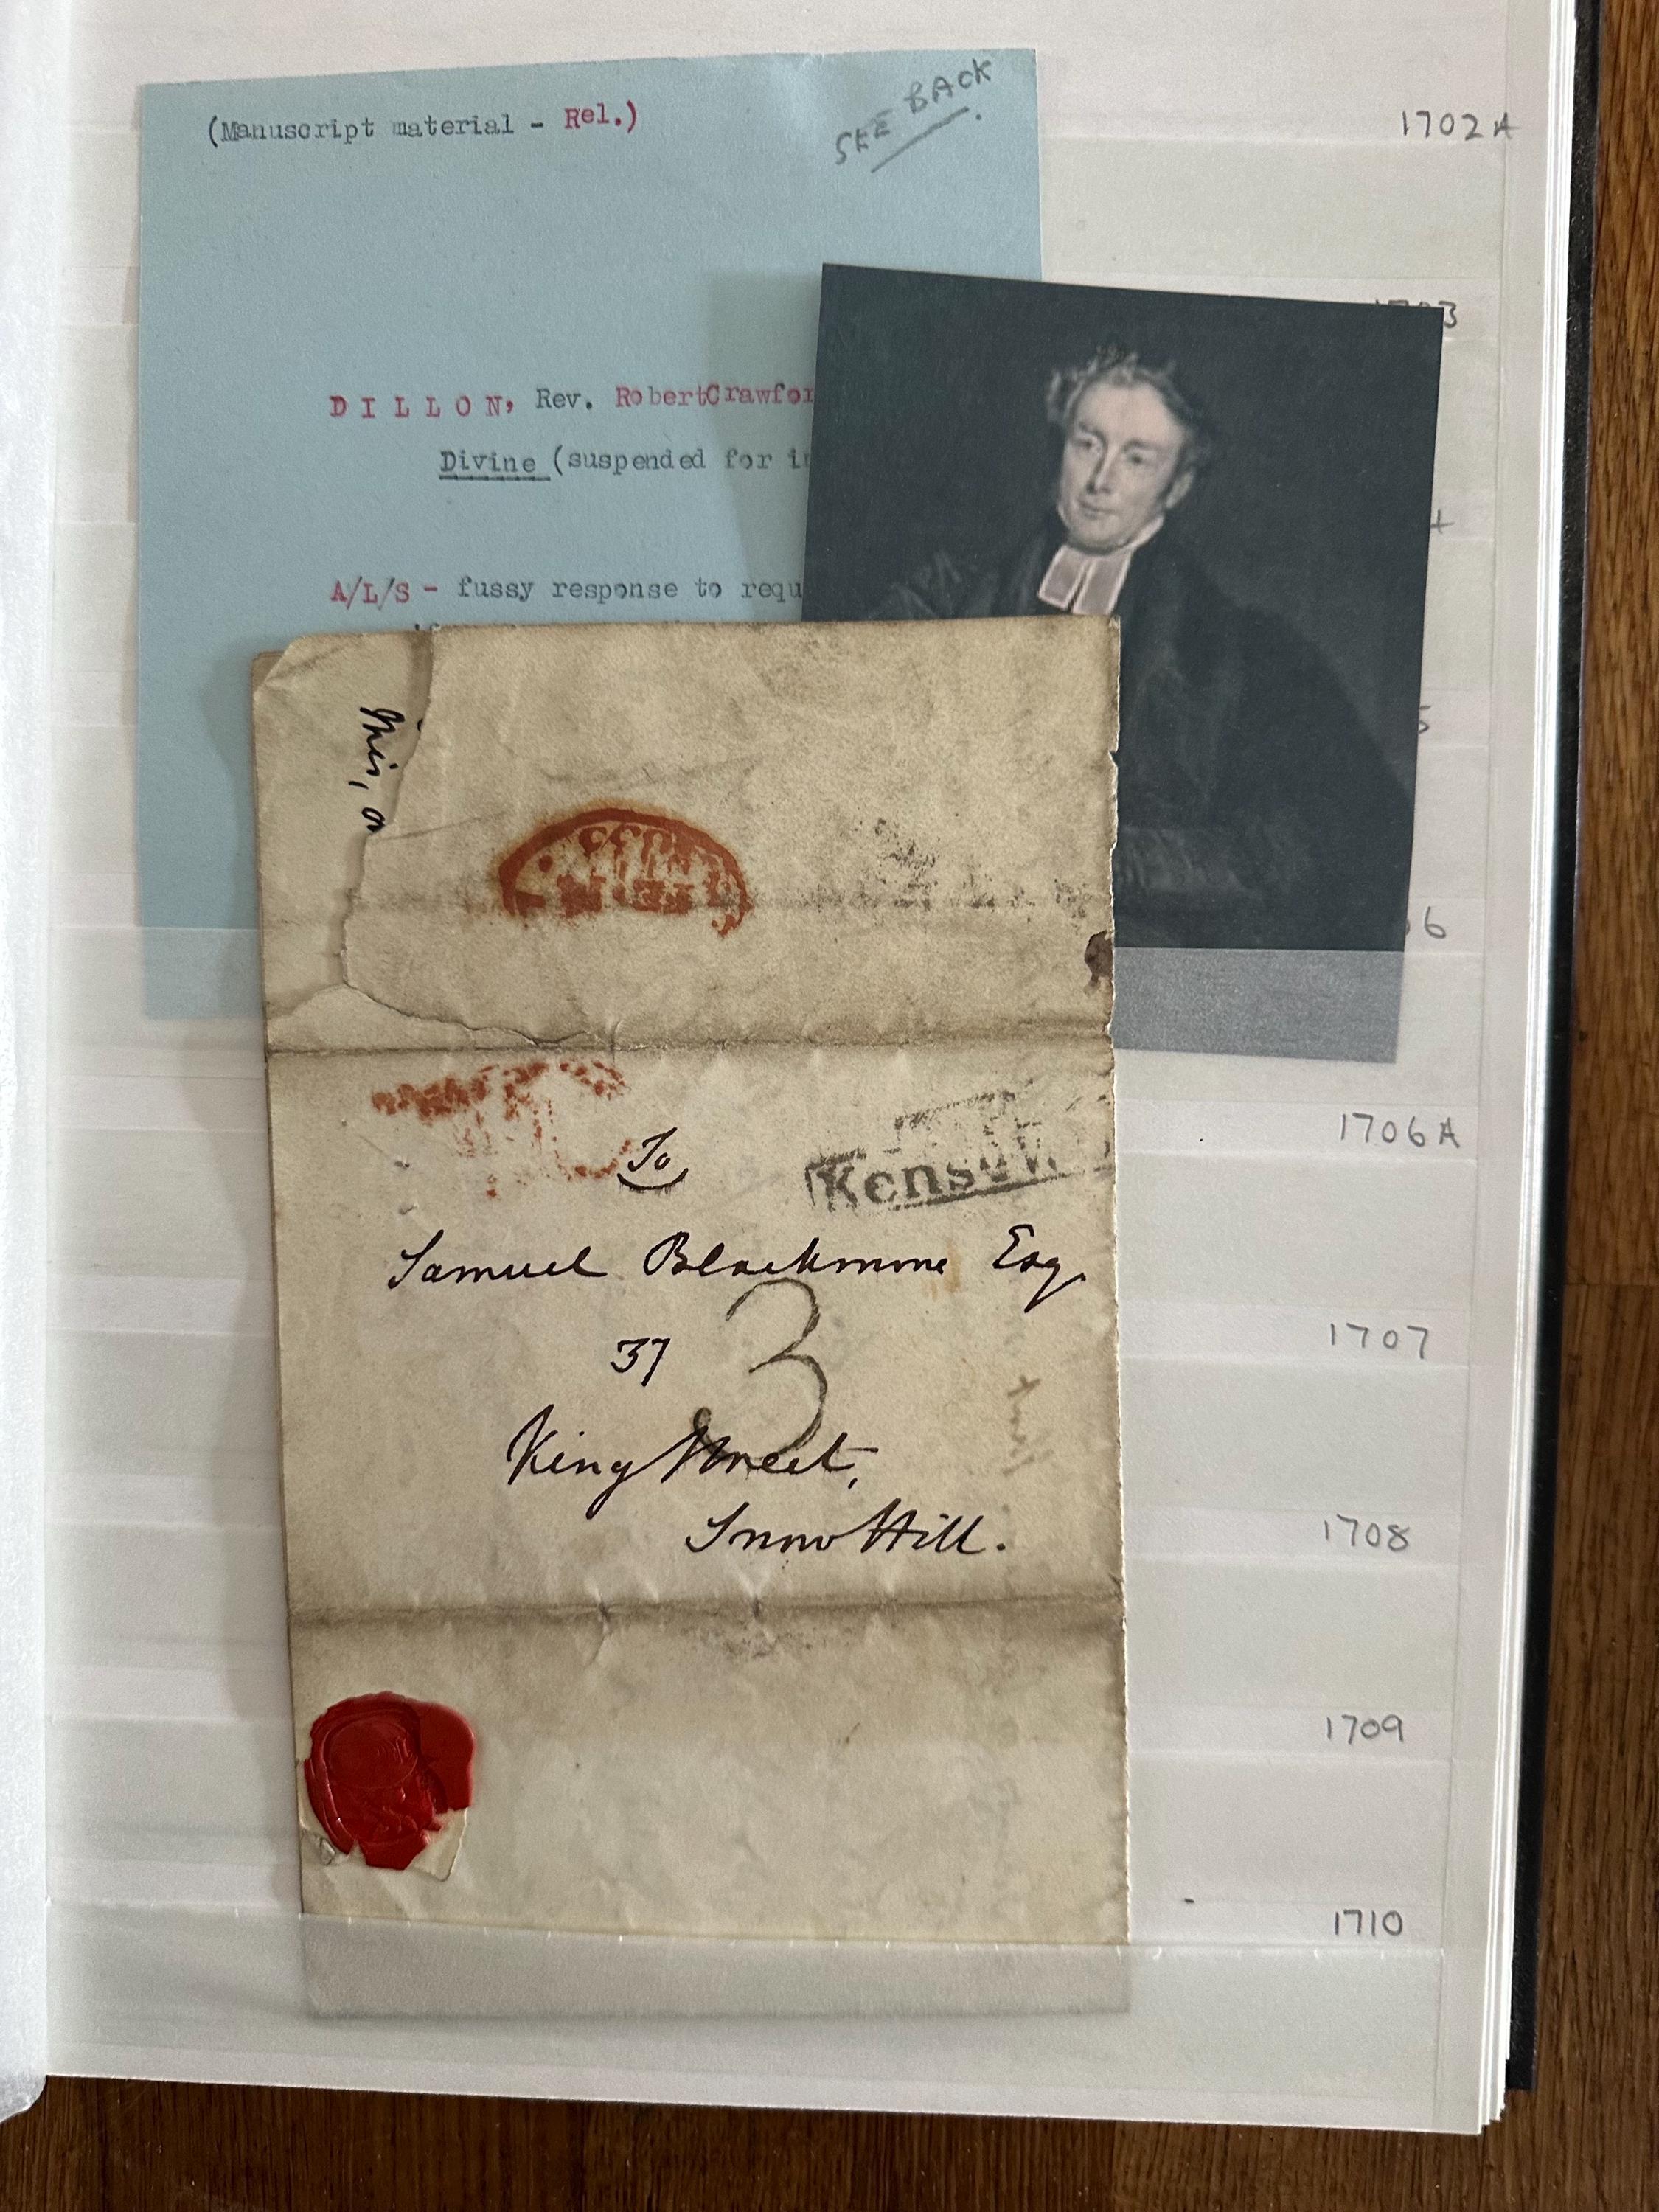 (Manuscript material - Rel.)
SEE BACK
1702A
DILLON, Rev. RobertCrawfor
Divine (suspended for i
A/L/S - fussy response to requ
this, o
To
Kens
Samuel Blackmore Esq.
37
3
King Street,
Snow Hill.
3
6
1706A
1707
1708
1709
1710